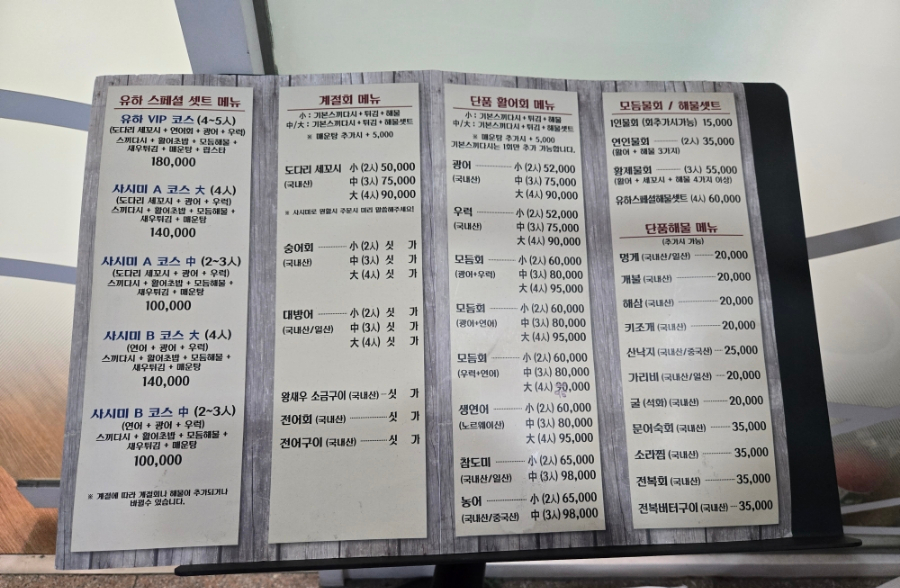 유하 스페셜 셋트 메뉴
유하 VIP 코스 (4~5人)
(도다리 세꼬시 + 연어회 + 광어 + 우럭)
스끼다시 + 활어초밥 + 모듬해물 +
새우튀김 + 매운탕 + 랍스타
180,000
사시미 A 코스 大 (4人)
(도다리 세꼬시 + 광어 + 우럭)
스끼다시 + 활어초밥 + 모듬해물 +
새우튀김 + 매운탕
140,000
사시미 A 코스 中 (2~3人)
(도다리 세꼬시 + 광어 + 우럭)
스끼다시 + 활어초밥 + 모듬해물 +
새우튀김 + 매운탕
100,000
사시미 B 코스 大 (4人)
(연어 + 광어 + 우럭)
스끼다시 + 활어초밥 + 모듬해물 +
새우튀김 + 매운탕
140,000
사시미 B 코스 中 (2~3人)
(연어 + 광어 + 우럭)
스끼다시 + 활어초밥 + 모듬해물 +
새우튀김 + 매운탕
100,000
※ 계절에 따라 계절회나 해물이 추가되거나
바뀔수 있습니다.
계절회 메뉴
小 : 기본스끼다시 + 튀김 + 해물
中/大 : 기본스끼다시 + 튀김 + 해물셋트
※ 매운탕 추가시 + 5,000
도다리 세꼬시 小 (2人) 50,000
(국내산) 中 (3人) 75,000
大 (4人) 90,000
※ 사시미로 변할시 주문시 미리 말씀해주세요!
숭어회 小 (2人) 싯 가
(국내산) 中 (3人) 싯 가
大 (4人) 싯 가
대방어 小 (2人) 싯 가
(국내산/일산) 中 (3人) 싯 가
大 (4人) 싯 가
왕새우 소금구이 (국내산) 싯 가
전어회 (국내산) 싯 가
전어구이 (국내산) 싯 가
단품 활어회 메뉴
小 : 기본스끼다시 + 튀김 + 해물
中/大 : 기본스끼다시 + 튀김 + 해물셋트
※ 매운탕 추가시 + 5,000
기본스끼다시는 1회만 추가 가능합니다.
광어 小 (2人) 52,000
(국내산) 中 (3人) 75,000
大 (4人) 90,000
우럭 小 (2人) 52,000
(국내산) 中 (3人) 75,000
大 (4人) 90,000
모듬회 小 (2人) 60,000
(광어+우럭) 中 (3人) 80,000
大 (4人) 95,000
모듬회 小 (2人) 60,000
(광어+연어) 中 (3人) 80,000
大 (4人) 95,000
모듬회 小 (2人) 60,000
(우럭+연어) 中 (3人) 80,000
大 (4人) 90,000
생연어 小 (2人) 60,000
(노르웨이산) 中 (3人) 80,000
大 (4人) 95,000
참도미 小 (2人) 65,000
(국내산/일산) 中 (3人) 98,000
농어 小 (2人) 65,000
(국내산/중국산) 中 (3人) 98,000
모듬물회 / 해물셋트
1인물회 (회추가시가능) 15,000
연인물회 (2人) 35,000
(활어 + 해물 3가지)
황제물회 (3人) 55,000
(활어 + 세꼬시 + 해물 4가지 이상)
유하스페셜해물셋트 (4人) 60,000
단품해물 메뉴
(추가시 가능)
멍게 (국내산/일산) 20,000
개불 (국내산) 20,000
해삼 (국내산) 20,000
키조개 (국내산) 20,000
산낙지 (국내산/중국산) 25,000
가리비 (국내산/일산) 20,000
굴 (석화) (국내산) 20,000
문어숙회 (국내산) 35,000
소라찜 (국내산) 35,000
전복회 (국내산) 35,000
전복버터구이 (국내산) 35,000